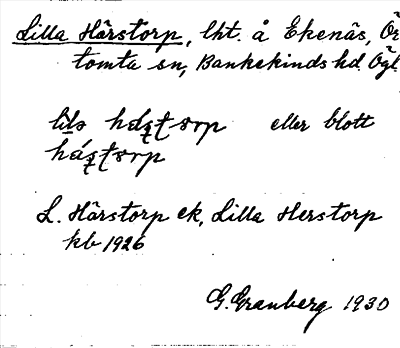 Lilla Hårstorp, lht. å Ekenäs, Ör
tomta sn, Bankekinds hd. Ögl
eller blott
L. Hårstorp ek, Lilla Herstorp
kb 1926
G. Granberg 1930